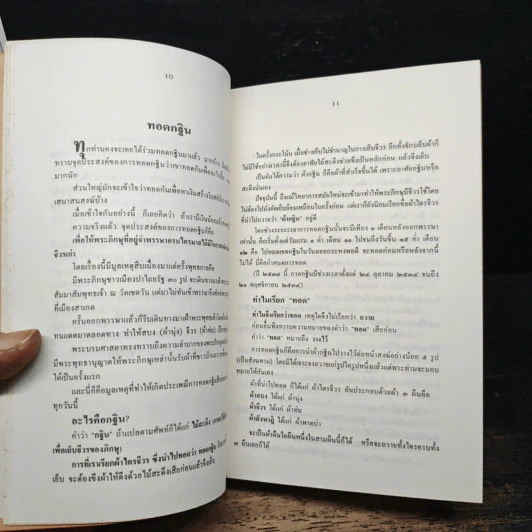 10
ทอดกฐิน
ทุกท่านคงจะเคยได้ร่วมทอดกฐินมาแล้ว มากบ้าง
ทราบจุดประสงค์ของการทอดกฐินว่าเขาทอดกันเพื่ออะไร
มากนัก
ส่วนใหญ่มักจะเข้าใจว่าทอดกฐินเพื่อหาเงินสร้างโบสถ์
เสนาสนสงฆ์บ้าง
เมื่อเข้าใจกันอย่างนี้ ก็เลยคิดว่า ถ้าเรามีเงินน้อยแล้ว
ความจริงแล้ว จุดประสงค์ของการทอดกฐินก็คือ
เพื่อให้พระภิกษุที่อยู่จำพรรษาครบไตรมาสได้มีโอกาส
จีวรเก่า
โดยเรื่องนี้มีมูลเหตุสืบเนื่องมาแต่ครั้งพุทธกาลคือ
มีพระภิกษุชาวเมืองปาไถยรัฐ ๓๐ รูป จะเดินทางมาเฝ้า
สัมมาสัมพุทธเจ้า ณ วัดเชตวัน แต่มาไม่ทันเข้าพรรษาจึงต้อง
ที่เมืองสาเกต
ครั้นออกพรรษาแล้วก็รีบเดินทางมาเฝ้าพระพุทธองค์
ทนแดดมาตลอดทาง ทำให้สบง (ผ้านุ่ง) จีวร (ผ้าห่ม)
พระบรมศาสดาทรงทราบถึงความลำบากของพระภิกษุ
มีพระพุทธานุญาตให้พระภิกษุเหล่านั้นรับผ้าที่ชาวบ้าน
ได้เป็นครั้งแรก
และนี่ก็คือมูลเหตุที่ทำให้เกิดประเพณีการทอดกฐินสืบ
ทุกวันนี้
อะไรคือกฐิน?
คำว่า "กฐิน" ถ้าแปลตามศัพท์ก็ได้แก่ ไม้สะดึง
เพื่อเย็บจีวรของภิกษุ)
การที่เราเรียกผ้าไตรจีวร ซึ่งนำไปทอดว่า ทอดกฐิน
เย็บ จะต้องขึงผ้าให้ตึงด้วยไม้สะดึงเสียก่อนแล้วจึงเย็บ
11
ในครั้งกระโน้น เมื่อช่างเย็บไม่ชำนาญในการเย็บจีวร อีกทั้งจักรเย็บผ้าก็
ไม่มีใช้อย่างเราเวลานี้จึงต้องอาศัยไม้สะดึงช่วยขึงเป็นหลักก่อน แล้วจึงเย็บ
เป็นอันได้ความว่า ผ้ากฐิน ก็คือผ้าที่สำเร็จขึ้นได้ เพราะอาศัยกฐินหรือ
สะดึงนั่นเอง
ปัจจุบันนี้ ถึงแม้วิทยาการสมัยใหม่จะเข้ามาทำให้พระภิกษุมีจีวรใช้โดย
ไม่ต้องไปนั่งตัดเย็บย้อมเหมือนในครั้งก่อน แต่เราก็ยังนิยมเรียกชื่อผ้าไตรจีวร
ที่นำไปถวายว่า "ผ้ากฐิน" อยู่ดี
โดยช่วงระยะเวลาการทอดกฐินนั้นจะมีเพียง ๑ เดือนหลังออกพรรษา
เท่านั้น คือเริ่มตั้งแต่วันแรม ๑ ค่ำ เดือน ๑๑ ไปจนถึงวันขึ้น ๑๕ ค่ำ เดือน
๑๒ คือ ไปหมดเขตกฐินในวันลอยกระทงพอดี จะทอดก่อนหรือหลังจากนี้
ไม่ได้ นี่คือกำหนดการทอด
(ปี ๒๕๓๔ นี้ กาลกฐินมีช่วงเวลาตั้งแต่ ๒๔ ตุลาคม ๒๕๓๔ จนถึง
๒๑ พฤศจิกายน ๒๕๓๔)
ทำไมเรียก "ทอด"
ทำไมถึงเรียกว่าทอด เหตุใดจึงไม่เรียกว่า ถวาย
ก่อนอื่นพึงทราบความหมายของคำว่า "ทอด" เสียก่อน
คำว่า "ทอด" หมายถึง วางไว้
การทอดกฐินก็คือการนำผ้ากฐินไปวางไว้ต่อหน้าสงฆ์อย่างน้อย ๕ รูป
(เป็นสังฆทาน) โดยมิได้เจาะจงถวายแก่รูปใดรูปหนึ่งแล้วแต่พระท่านจะมอบ
หมายให้กันเอง
ผ้าที่นำไปทอด ก็ได้แก่ ผ้าไตรจีวร อันประกอบด้วยผ้า ๓ ผืนคือ
ผ้าสบง ได้แก่ ผ้านุ่ง
ผ้าจีวร ได้แก่ ผ้าห่ม
ผ้าสังฆาฏิ ได้แก่ ผ้าพาดบ่า
จะเป็นผ้าผืนใดผืนหนึ่งในสามผืนนี้ก็ได้ หรือจะถวายทั้งไตรครบทั้ง
๓ ผืนเลยก็ได้